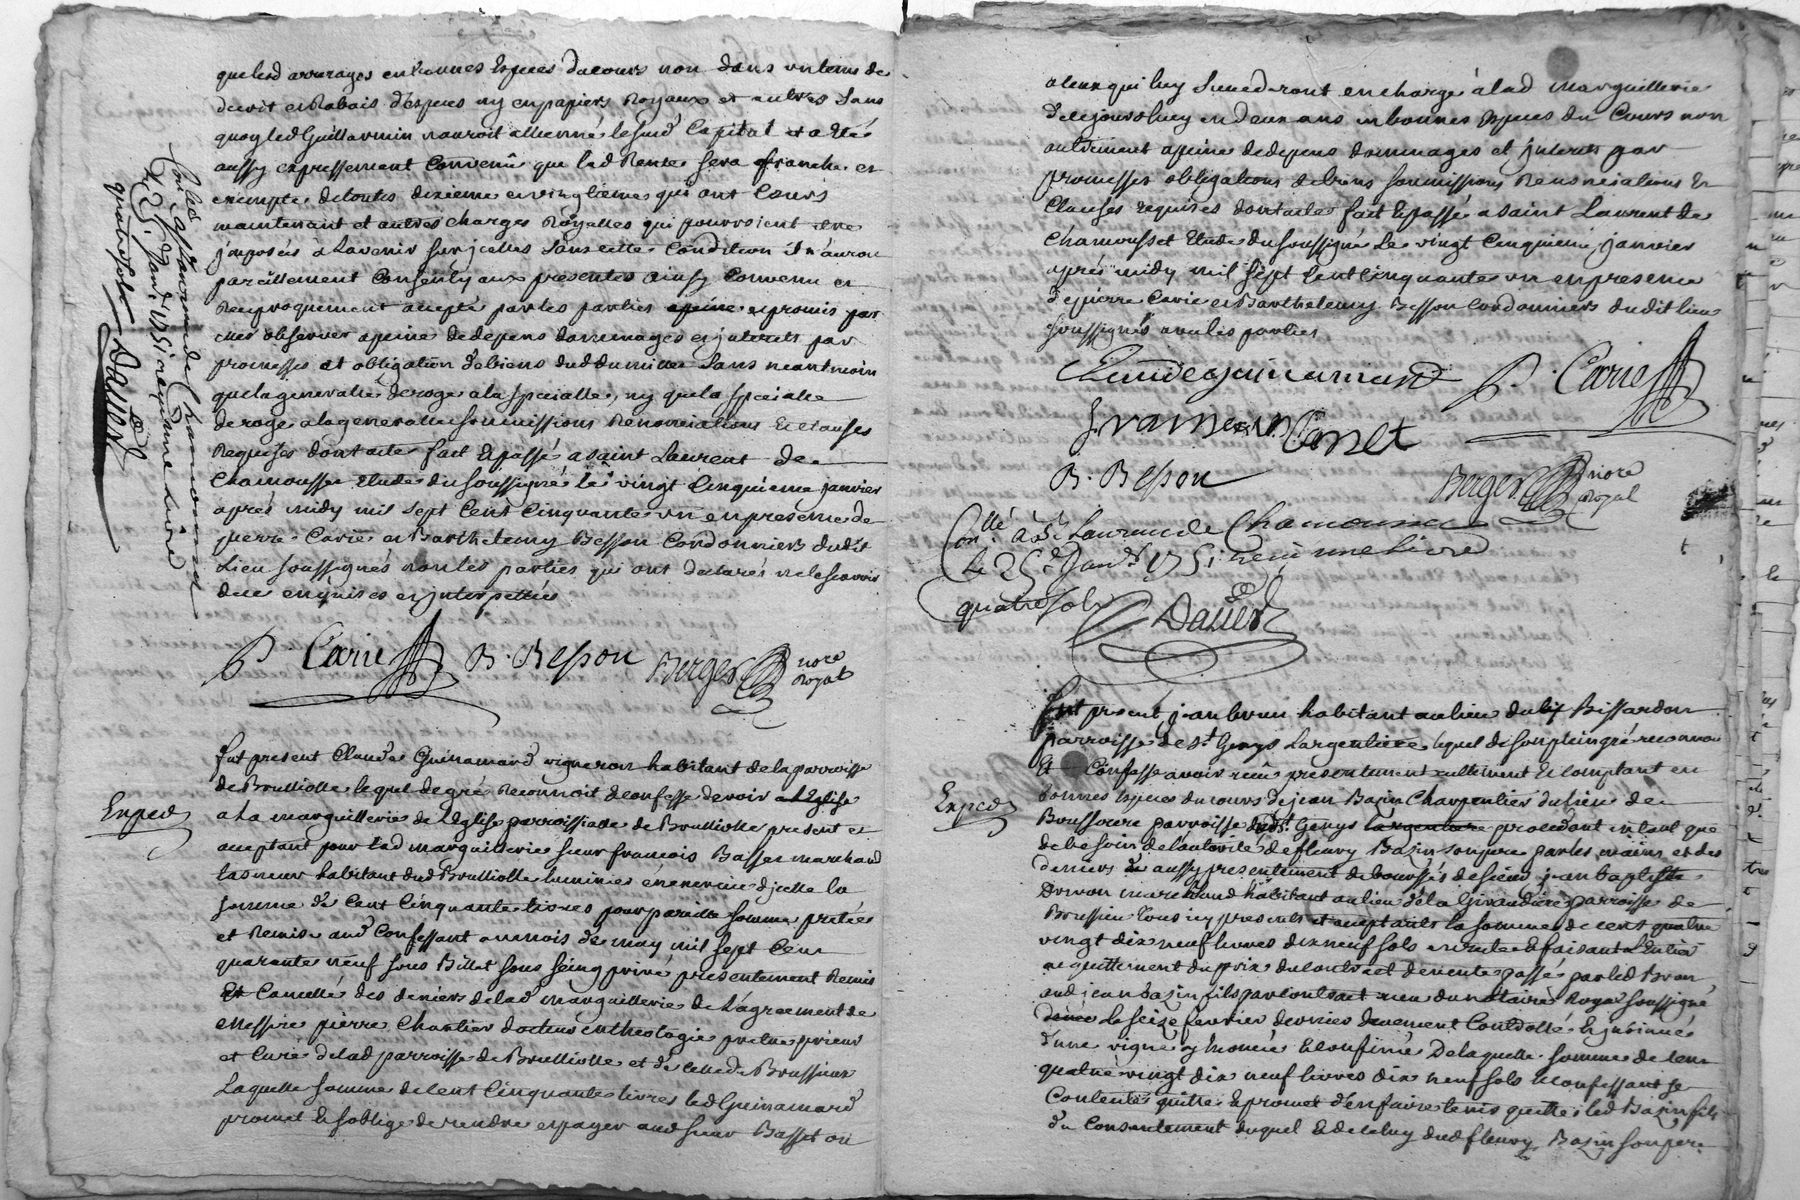 que lesd arrerages en bonnes Especes du cours non dans un tems de
decrit et Rabais d'especes ny en papiers Royaux et autres sans
quoy led Guillarmin n'auroit allienné le susd Capital et a Eté
aussy expressement Convenû que lad Rente sera franche et
exempte de toutes dixieme et vingtieme qui ont Cours
maintenant et autres charges Royalles qui pourroient etre
jmposés à l'avenir sur jcelles sans cette Condition Il n'auroit
pareillement Consenty aux presentes ainsy Convenu et
Reciproquement accepté par les parties et promis par
elles observer a peine de depens dommages et jnterets par
promesses et obligation de biens sans neantmoin
que la generalle deroge a la specialle, ny que la specialle
deroge a la generalle soumissions Renonciations Et clauses
Requises dont acte fait Et passé a saint Laurent de
Chamousset Etude du soussigné le vingt Cinquieme janvier
aprés midy mil sept Cent Cinquante un en presence de
pierre Carié et Barthelemy Besson Cordonniers dudit
Lieu soussignés non les parties qui ont declarés ne le scavoir
de ce enquises et jnterpellées
Con.lé a St Laurent de Chamousset
le 25e Janv. 1751 reçu une livre
quatre sols Dauer
P. Carié B. Besson Berger nore
Royal
Fut present Claude Guinamard vigneron habitant de la parroisse
de Brulliolle lequel de gré Reconnoit Et confesse devoir a l'Eglise
a La marguillerie de l'Eglise parroissialle de Brulliolle present et
acceptant pour lad marguillerie sieur francois Basset marchand
tanneur habitant dud Brulliolle luminier en exercice d'jcelle la
somme de Cent Cinquante livres pour pareille somme pretée
et Remise aud Confessant au mois de may mil sept Cent
quarante neuf sous Billet sous seing privé presentement Remis
Et Cancellé des deniers de lad marguillerie de l'agreement de
Messire pierre Chartier docteur en theologie pretre prieur
et Curé de lad parroisse de Brulliolle et de celle de Brussieux
Laquelle somme de Cent Cinquante livres led Guinamard
promet Et s'oblige de rendre et payer aud sieur Basset ou
Exped
a ceux qui luy succederont en charge a lad marguillerie
de ce jourdhuy en deux ans en bonnes Especes du Cours non
autrement a peine de depens dommages et jnterets par
promesses obligations de biens soumissions Renonciations Et
Clauses requises dont acte fait Et passé a saint Laurent de
Chamousset Etude du soussigné Le vingt Cinquieme janvier
aprés midy mil sept Cent Cinquante un en presence
de pierre Carié et Barthelemy Besson Cordonniers dudit lieu
soussignés avec les parties
Claude guinamard P. Carié
B. Besson Berger nore
Royal
Con.llé a St Laurent de Chamousset
le 25e Janv. 1751 reçu une livre
quatre sols
Dauer
Fut present jean brun habitant au lieu du Bissardon
parroisse de St Genys Largentiere lequel de son plein gré reconnoit
Et Confesse avoir reçu presentement reellement Et comptant en
bonnes Especes du cours de jean Bazin Charpentier du lieu de
parroisse dud St Genys Largentiere procedant en tant que
de besoin de l'autorité de fleury Bazin son pere par les mains et des
deniers aussy presentement deboursés de sieur jean baptiste
marchand habitant au lieu de la Girandiere parroisse de
Brussieu tous icy presents et acceptants la somme de cent quatre
vingt dix neuf livres dix neuf sols en reste Et faisant l'entier
acquittement du prix du Contract de vente passé par led Brun
aud jean bazin fils par Contract reçu du notaire Royal soussigné
le seize fevrier dernier deuement Controllé Et jnsinué
d'une vigne y Enoncée Et confinée De laquelle somme de Cent
quatre vingt dix neuf livres dix neuf sols le confessant se
Contente quitte Et promet d'en faire tenir quitte led Bazin fils
du Consentement duquel Et de celuy dud fleury Bazin son pere
Exped